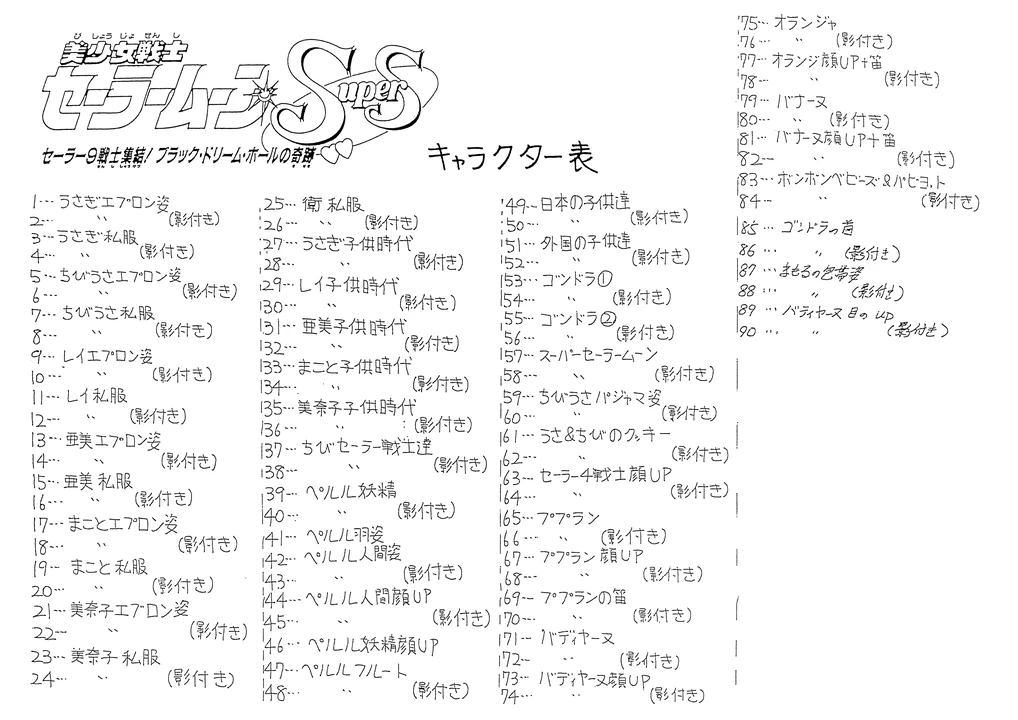 び しょう じょ せん し
美少女戦士
セーラームーンSuperS
セーラー9戦士集結!ブラック・ドリーム・ホールの奇跡
せんし しゅうけつ きせき
キャラクター表
1…うさぎエプロン姿
2… 〃 (影付き)
3…うさぎ私服
4… 〃 (影付き)
5…ちびうさエプロン姿
6… 〃 (影付き)
7…ちびうさ私服
8… 〃 (影付き)
9…レイエプロン姿
10… 〃 (影付き)
11…レイ私服
12… 〃 (影付き)
13…亜美エプロン姿
14… 〃 (影付き)
15…亜美私服
16… 〃 (影付き)
17…まことエプロン姿
18… 〃 (影付き)
19…まこと私服
20… 〃 (影付き)
21…美奈子エプロン姿
22… 〃 (影付き)
23…美奈子私服
24… 〃 (影付き)
25…衛私服
26… 〃 (影付き)
27…うさぎ子供時代
28… 〃 (影付き)
29…レイ子供時代
30… 〃 (影付き)
31…亜美子供時代
32… 〃 (影付き)
33…まこと子供時代
34… 〃 (影付き)
35…美奈子子供時代
36… 〃 (影付き)
37…ちびセーラー戦士達
38… 〃 (影付き)
39…ペルル妖精
40… 〃 (影付き)
41…ペルル羽姿
42…ペルル人間姿
43… 〃 (影付き)
44…ペルル人間顔UP
45… 〃 (影付き)
46…ペルル妖精顔UP
47…ペルルフルート
48… 〃 (影付き)
49…日本の子供達
50… 〃 (影付き)
51…外国の子供達
52… 〃 (影付き)
53…ゴンドラ①
54… 〃 (影付き)
55…ゴンドラ②
56… 〃 (影付き)
57…スーパーセーラームーン
58… 〃 (影付き)
59…ちびうさパジャマ姿
60… 〃 (影付き)
61…うさ&ちびのクッキー
62… 〃 (影付き)
63…セーラー4戦士顔UP
64… 〃 (影付き)
65…ププラン
66… 〃 (影付き)
67…ププラン顔UP
68… 〃 (影付き)
69…ププランの笛
70… 〃 (影付き)
71…バディヤーヌ
72… 〃 (影付き)
73…バディヤーヌ顔UP
74… 〃 (影付き)
75…オランジャ
76… 〃 (影付き)
77…オランジ顔UP+笛
78… 〃 (影付き)
79…バナーヌ
80… 〃 (影付き)
81…バナーヌ顔UP+笛
82… 〃 (影付き)
83…ボンボンベビーズ&パピヨット
84… 〃 (影付き)
85…ゴンドラの歯
86… 〃 (影付き)
87…まもるの包帯姿
88… 〃 (影付き)
89…バディヤーヌ目のUP
90… 〃 (影付き)